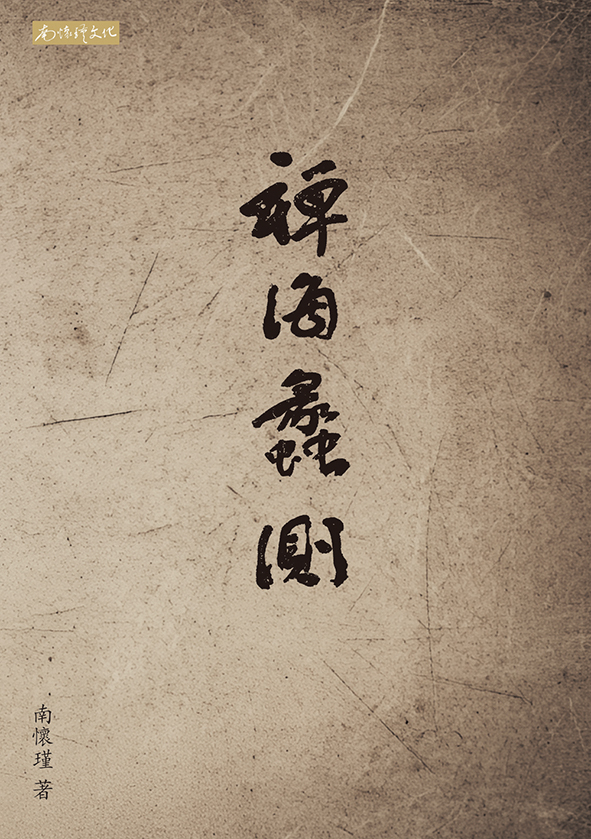 南懷瑾文化
禪海蠡測
南懷瑾 著